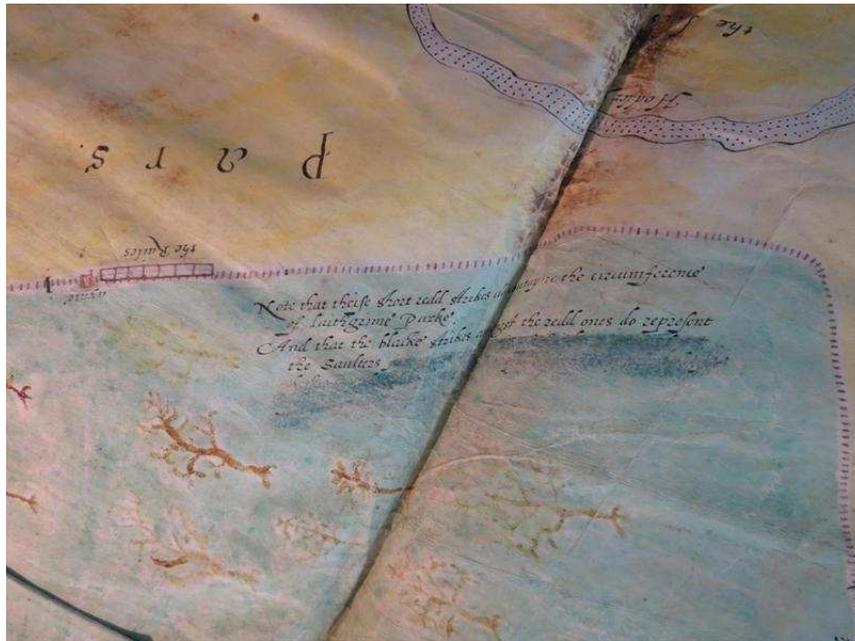 the
Hodder
pars.
the Railes
Note that theise short redd strikes the circumference
of Laithgrime Parke,
And that the blacke strikes the redd ones do represent
the Saulters